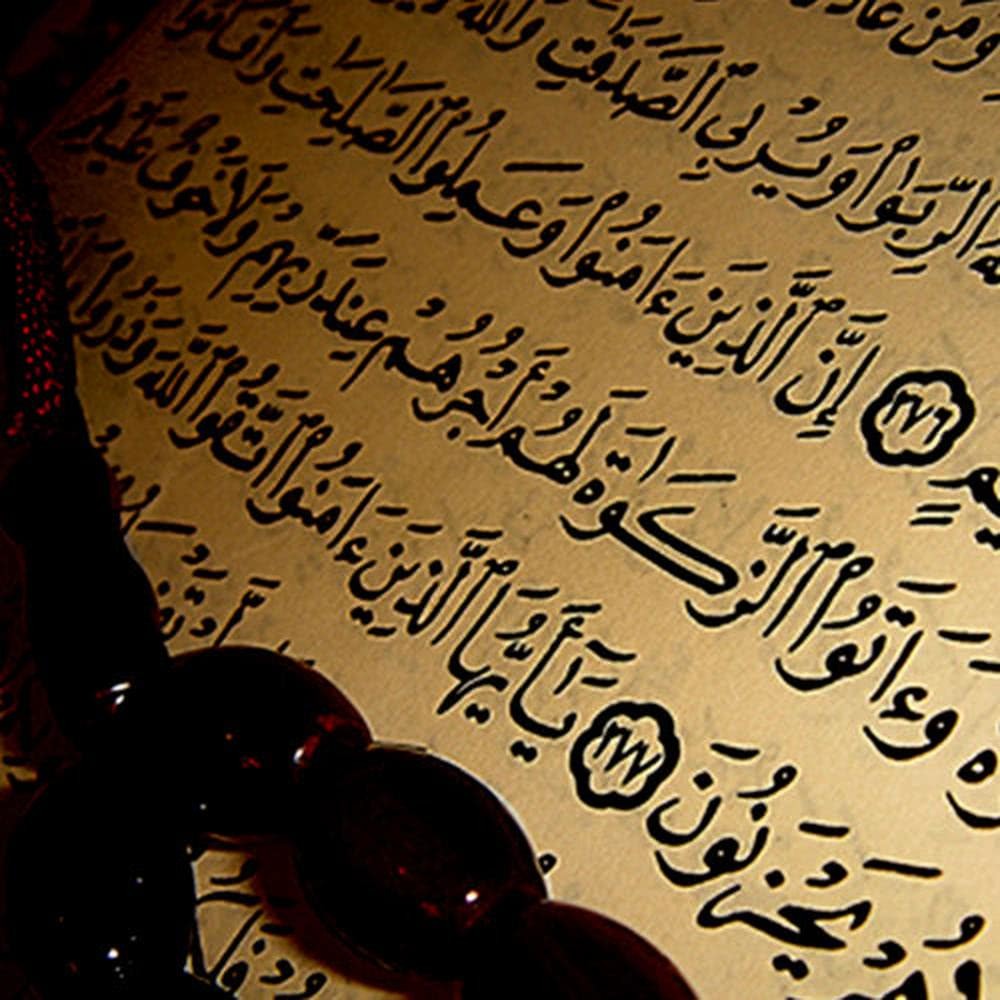 وَمَنْ عَادَ
ٱلرِّبَوٰا۟ وَيُرْبِى ٱلصَّدَقَٰتِ وَٱللَّهُ
إِنَّ ٱلَّذِينَ ءَامَنُوا۟ وَعَمِلُوا۟ ٱلصَّٰلِحَٰتِ وَأَقَامُوا۟
٢٧٦
وَءَاتَوُا۟ ٱلزَّكَوٰةَ لَهُمْ أَجْرُهُمْ عِندَ رَبِّهِمْ وَلَا خَوْفٌ عَلَيْهِمْ
يَحْزَنُونَ ٢٧٧ يَٰٓأَيُّهَا ٱلَّذِينَ ءَامَنُوا۟ ٱتَّقُوا۟ ٱللَّهَ وَذَرُوا۟